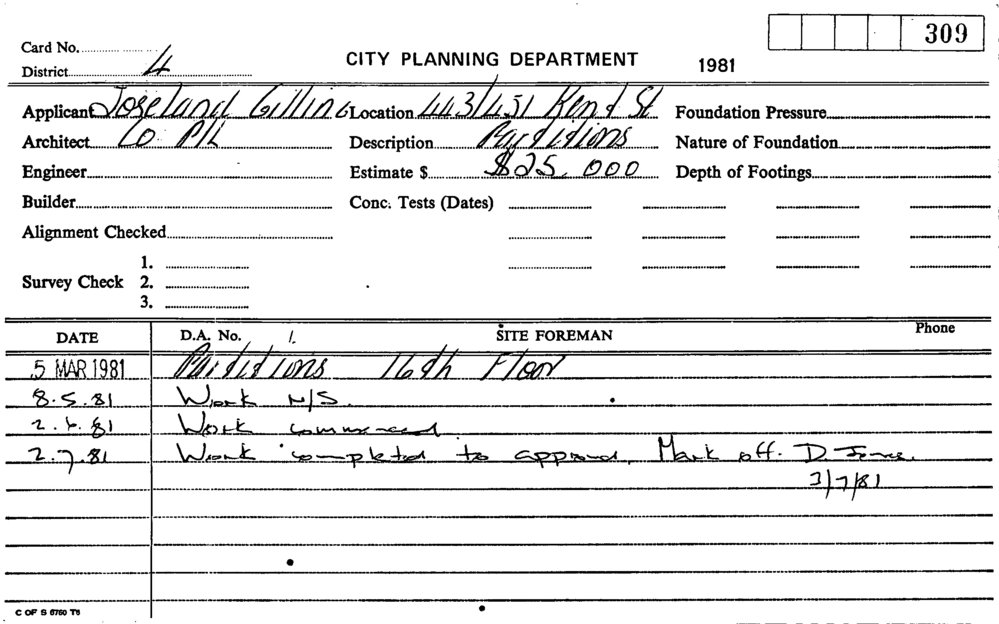 309
Card No.
District 4
CITY PLANNING DEPARTMENT 1981
Applicant Joseland Gilling Location 443/451 Kent St Foundation Pressure
Architect Co P/L Description Partitions Nature of Foundation
Engineer Estimate $ $25,000 Depth of Footings
Builder Conc. Tests (Dates)
Alignment Checked
1.
Survey Check 2.
3.
DATE D.A. No. /. SITE FOREMAN Phone
5 MAR 1981 Partitions 16th Floor
8.5.81 Work N/S.
2.6.81 Work commenced
2.7.81 Work completed to approval. Mark off. D Jones.
3/7/81
C OF S 6760 T6